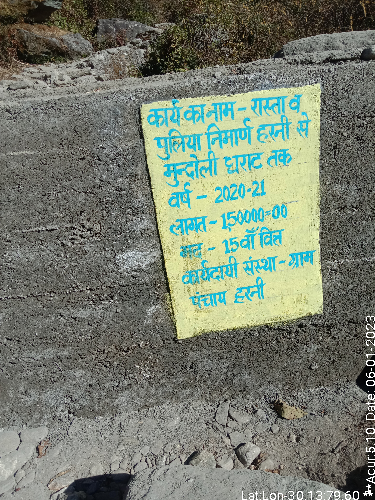 कार्य का नाम - रास्ता व
पुलिया निमार्ण हरनी से
मुन्दोली घराट तक
वर्ष - 2020-21
लागत - 150000=00
मद - 15वाँ वित
कार्यदायी संस्था - ग्राम
पंचाय हरनी
Lat Lon-30.13,79.60
Acur:5.10, Date: 06-01-2023